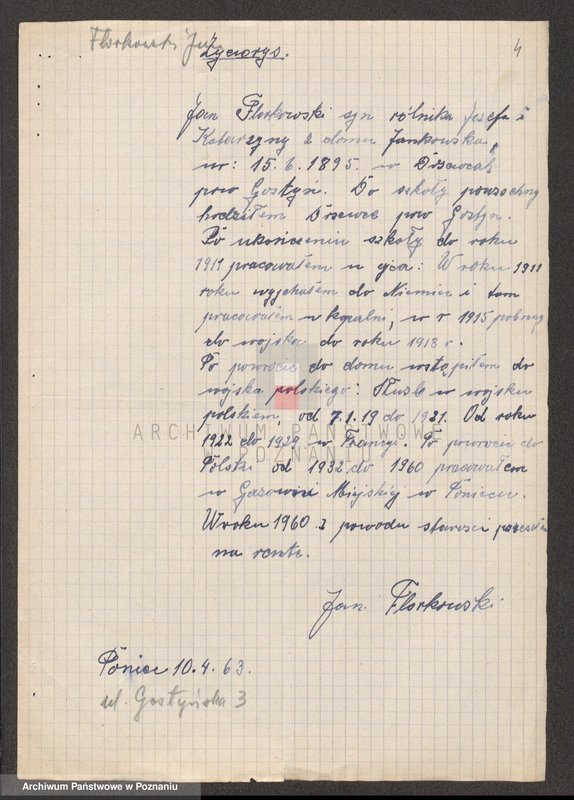 Florkowski Jan
4
Życiorys.
Jan Florkowski syn rólnika Józefa i
Katarzyny z domu Jankowska,
ur: 15.6.1895. w Drzewcah
pow Gostyń. Do szkoły powzachny
hodziłem Drzewce pow Gostyn.
Po ukończeniu szkoły do roku
1911 pracowałem u ojca: W roku 1911
roku wyjchałem do Niemiec i tam
pracowałem w kopalni, w r 1915 pobrany
do wojska do roku 1918 r.
Po powrocie do domu wstąpiłem do
wojska polskiego: Służba w wojsku
polskiem, od 7.1.19 do 1921. Od roku
1922 do 1929 w Francyi. Po powrocie do
Polski od 1932 do 1960 pracowałem
w Gazowni Miejskiej w Poniecu.
W roku 1960 z powodu starosci
na rente.
Jan Florkowski
Poniec 10.4.63.
ul. Gostyńska 3
ARCHIWUM PAŃSTWOWE
W POZNANIU
Archiwum Państwowe w Poznaniu